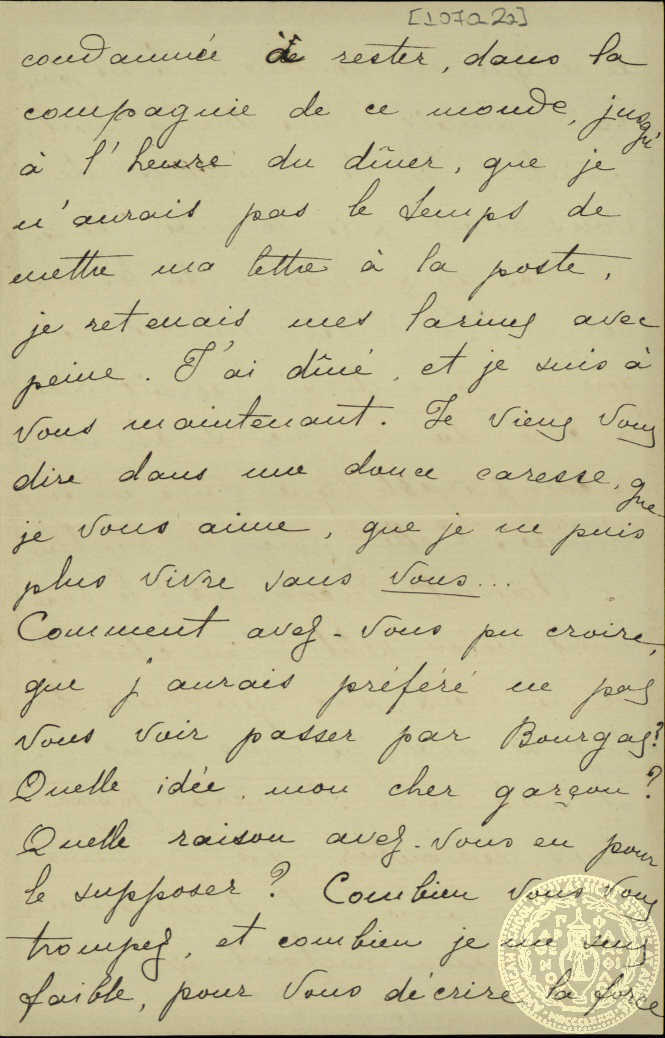 [107a 2a]
condamnée de rester, dans la
compagnie de ce monde, jusqu'
à l'heure du dîner, que je
n'aurais pas le temps de
mettre ma lettre à la poste,
je retenais mes larmes avec
peine. J'ai dîné, et je suis à
vous maintenant. Je viens vous
dire dans une douce caresse, que
je vous aime, que je ne puis
plus vivre sans vous...
Comment avez-vous pu croire,
que j'aurais préféré ne pas
vous voir passer par Bourgas?
Quelle idée, mon cher garçon?
Quelle raison avez-vous eu pour
le supposer? Combien vous vous
trompez, et combien je me sens
faible, pour vous décrire la force